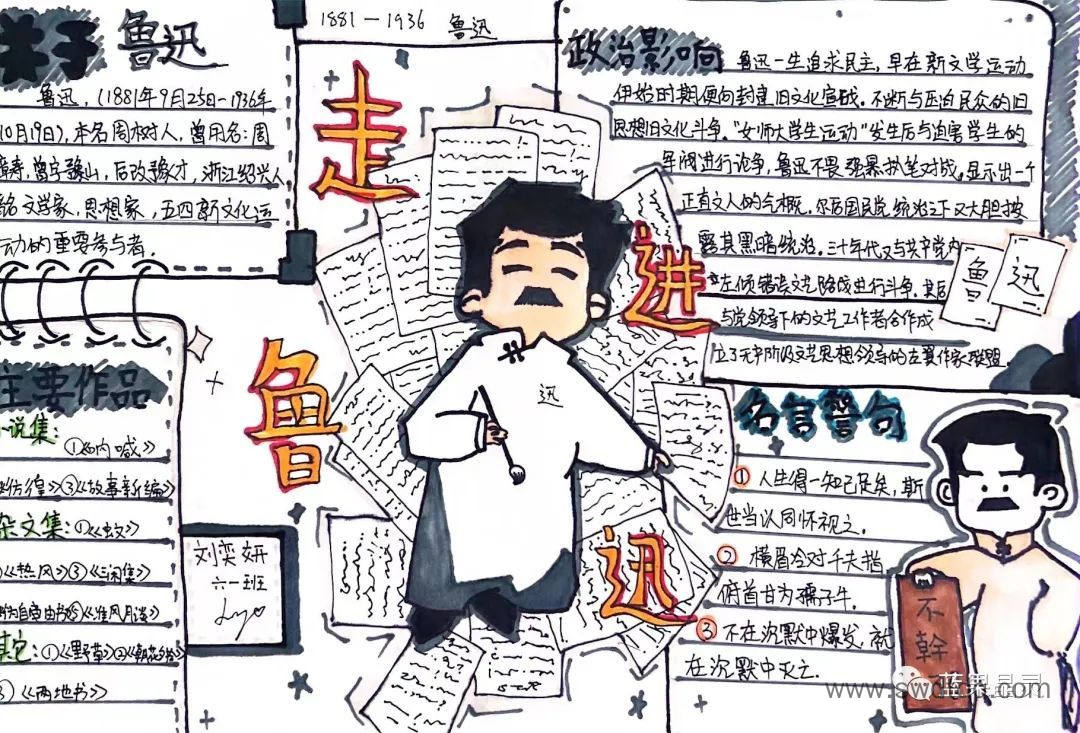 鲁迅
鲁迅,(1881年9月25日-1936年
10月19日),本名周树人,曾用名:周
寿,曾字豫山,后改豫才,浙江绍兴人
名文学家,思想家,五四新文化运
动的重要参与者.
1881-1936 鲁迅
走
进
鲁
迅
政治影响
鲁迅一生追求民主,早在新文学运动
伊始时期便向封建旧文化宣战.不断与压迫民众的旧
思想旧文化斗争."女师大学生运动"发生后与迫害学生的
军阀进行论争,鲁迅不畏强暴执笔对战,显示出一个
正直文人的气概.尔后国民党统治之下又大胆披
露其黑暗统治.三十年代又与共产党内
左倾错误文艺路线进行斗争.其后
与党领导下的文艺工作者合作成
立了无产阶级文艺思想领导的左翼作家联盟
鲁
迅
主要作品
说集:
①《呐喊》
仿徨》③《故事新编》
杂文集:①《坟》
《热风》③《三闲集》
自由书》《准风月谈》
其它:①《野草》②
《两地书》
刘奕妍
六一班
迅
名言警句
① 人生得一知己足矣,斯
世当以同怀视之.
② 横眉冷对千夫指
俯首甘为孺子牛.
③ 不在沉默中爆发,就
在沉默中灭亡.
不
幹
蓝果